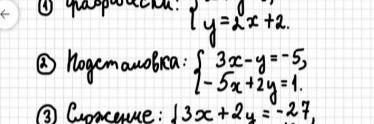 ① Графически:
y=2x+2.
② Подстановка: { 3x-y=-5,
-5x+2y=1.
③ Сложение: { 3x+2y=-27,